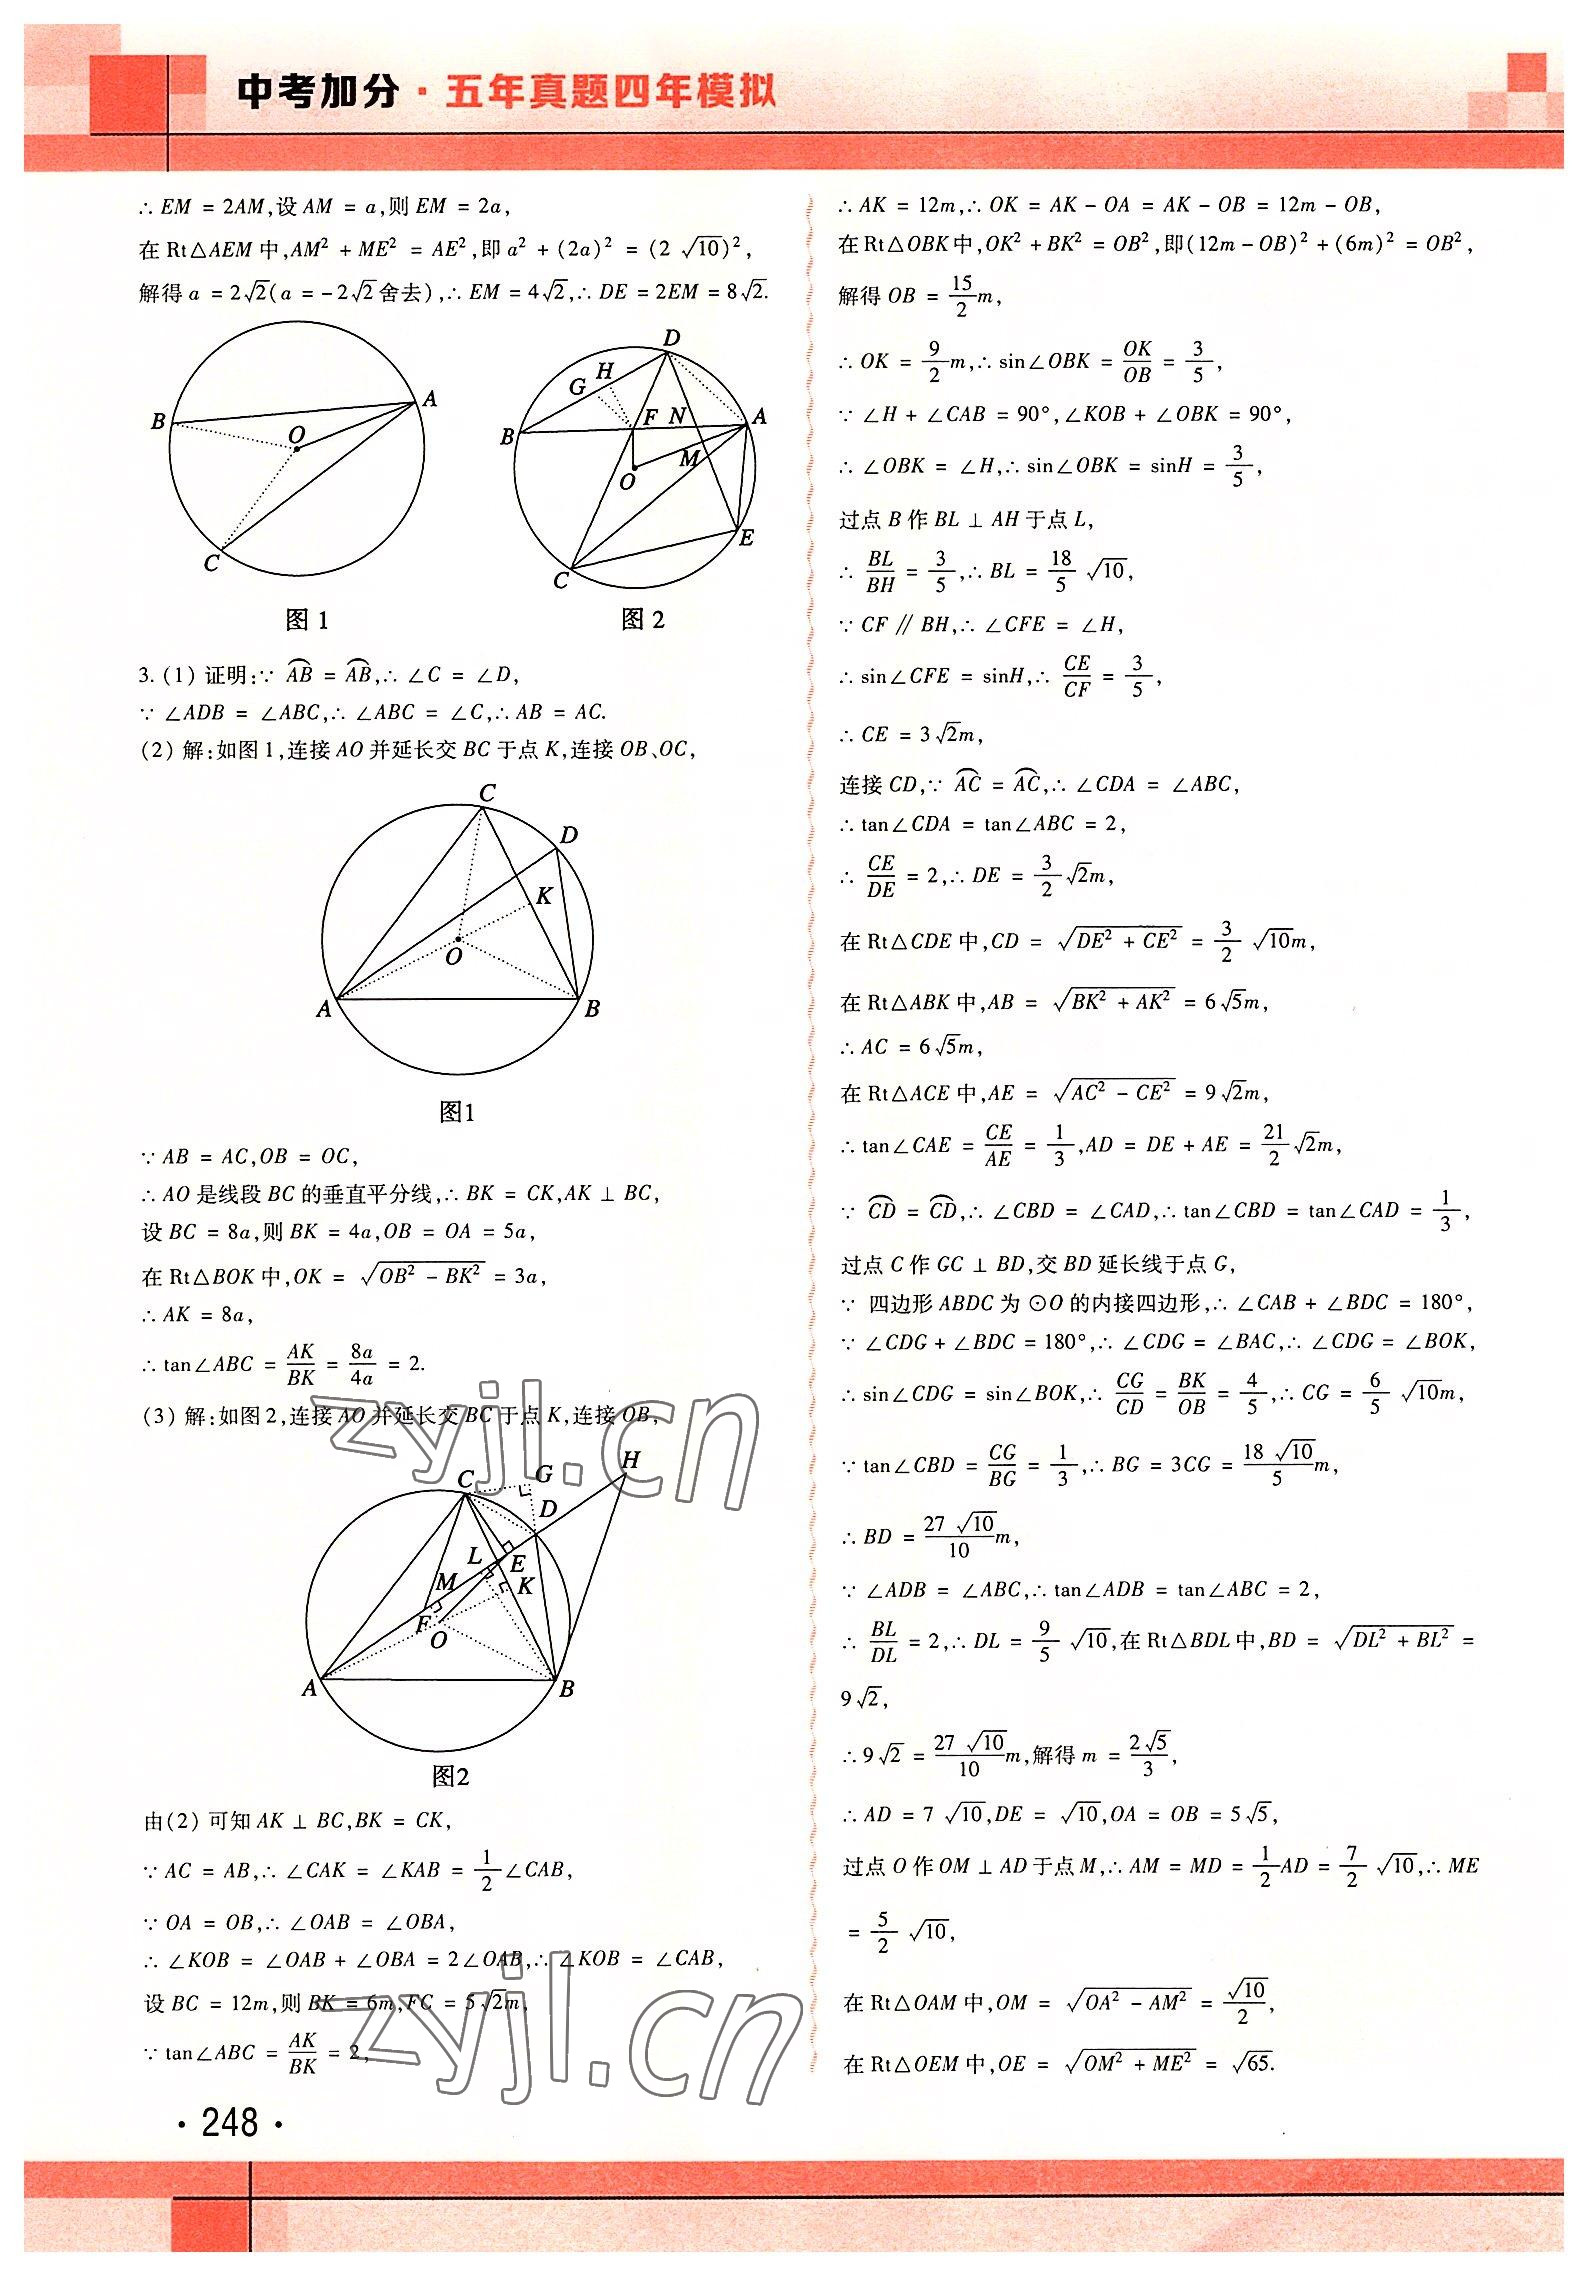 中考加分·五年真题四年模拟
∴ EM = 2AM,设 AM = a,则 EM = 2a,
在 Rt△AEM 中,AM² + ME² = AE²,即 a² + (2a)² = (2√10)²,
解得 a = 2√2(a = -2√2舍去),∴ EM = 4√2,∴ DE = 2EM = 8√2.
A
B
O
C
图 1
D
H
G
F
N
A
B
M
O
E
C
图 2
3. (1) 证明:∵ ⌒AB = ⌒AB,∴ ∠C = ∠D,
∵ ∠ADB = ∠ABC,∴ ∠ABC = ∠C,∴ AB = AC.
(2) 解:如图 1,连接 AO 并延长交 BC 于点 K,连接 OB、OC,
C
D
K
O
A
B
图1
∵ AB = AC,OB = OC,
∴ AO 是线段 BC 的垂直平分线,∴ BK = CK,AK ⊥ BC,
设 BC = 8a,则 BK = 4a,OB = OA = 5a,
在 Rt△BOK 中,OK = √(OB² - BK²) = 3a,
∴ AK = 8a,
∴ tan∠ABC = AK/BK = 8a/4a = 2.
(3) 解:如图 2,连接 AO 并延长交 BC 于点 K,连接 OB,
H
C
G
D
L
E
M
K
F
O
A
B
图2
由(2) 可知 AK ⊥ BC,BK = CK,
∵ AC = AB,∴ ∠CAK = ∠KAB = 1/2∠CAB,
∵ OA = OB,∴ ∠OAB = ∠OBA,
∴ ∠KOB = ∠OAB + ∠OBA = 2∠OAB,∴ ∠KOB = ∠CAB,
设 BC = 12m,则 BK = 6m,FC = 5√2m,
∵ tan∠ABC = AK/BK = 2,
∴ AK = 12m,∴ OK = AK - OA = AK - OB = 12m - OB,
在 Rt△OBK 中,OK² + BK² = OB²,即(12m - OB)² + (6m)² = OB²,
解得 OB = 15/2 m,
∴ OK = 9/2 m,∴ sin∠OBK = OK/OB = 3/5,
∵ ∠H + ∠CAB = 90°,∠KOB + ∠OBK = 90°,
∴ ∠OBK = ∠H,∴ sin∠OBK = sinH = 3/5,
过点 B 作 BL ⊥ AH 于点 L,
∴ BL/BH = 3/5,∴ BL = 18/5 √10,
∵ CF ∥ BH,∴ ∠CFE = ∠H,
∴ sin∠CFE = sinH,∴ CE/CF = 3/5,
∴ CE = 3√2m,
连接 CD,∵ ⌒AC = ⌒AC,∴ ∠CDA = ∠ABC,
∴ tan∠CDA = tan∠ABC = 2,
∴ CE/DE = 2,∴ DE = 3/2 √2m,
在 Rt△CDE 中,CD = √(DE² + CE²) = 3/2 √10m,
在 Rt△ABK 中,AB = √(BK² + AK²) = 6√5m,
∴ AC = 6√5m,
在 Rt△ACE 中,AE = √(AC² - CE²) = 9√2m,
∴ tan∠CAE = CE/AE = 1/3,AD = DE + AE = 21/2 √2m,
∵ ⌒CD = ⌒CD,∴ ∠CBD = ∠CAD,∴ tan∠CBD = tan∠CAD = 1/3,
过点 C 作 GC ⊥ BD,交 BD 延长线于点 G,
∵ 四边形 ABDC 为 ⊙O 的内接四边形,∴ ∠CAB + ∠BDC = 180°,
∵ ∠CDG + ∠BDC = 180°,∴ ∠CDG = ∠BAC,∴ ∠CDG = ∠BOK,
∴ sin∠CDG = sin∠BOK,∴ CG/CD = BK/OB = 4/5,∴ CG = 6/5 √10m,
∵ tan∠CBD = CG/BG = 1/3,∴ BG = 3CG = 18√10/5 m,
∴ BD = 27√10/10 m,
∵ ∠ADB = ∠ABC,∴ tan∠ADB = tan∠ABC = 2,
∴ BL/DL = 2,∴ DL = 9/5 √10,在 Rt△BDL 中,BD = √(DL² + BL²) =
9√2,
∴ 9√2 = 27√10/10 m,解得 m = 2√5/3,
∴ AD = 7√10,DE = √10,OA = OB = 5√5,
过点 O 作 OM ⊥ AD 于点 M,∴ AM = MD = 1/2 AD = 7/2 √10,∴ ME
= 5/2 √10,
在 Rt△OAM 中,OM = √(OA² - AM²) = √10/2,
在 Rt△OEM 中,OE = √(OM² + ME²) = √65.
zyjl.cn
zyjl.cn
·248·